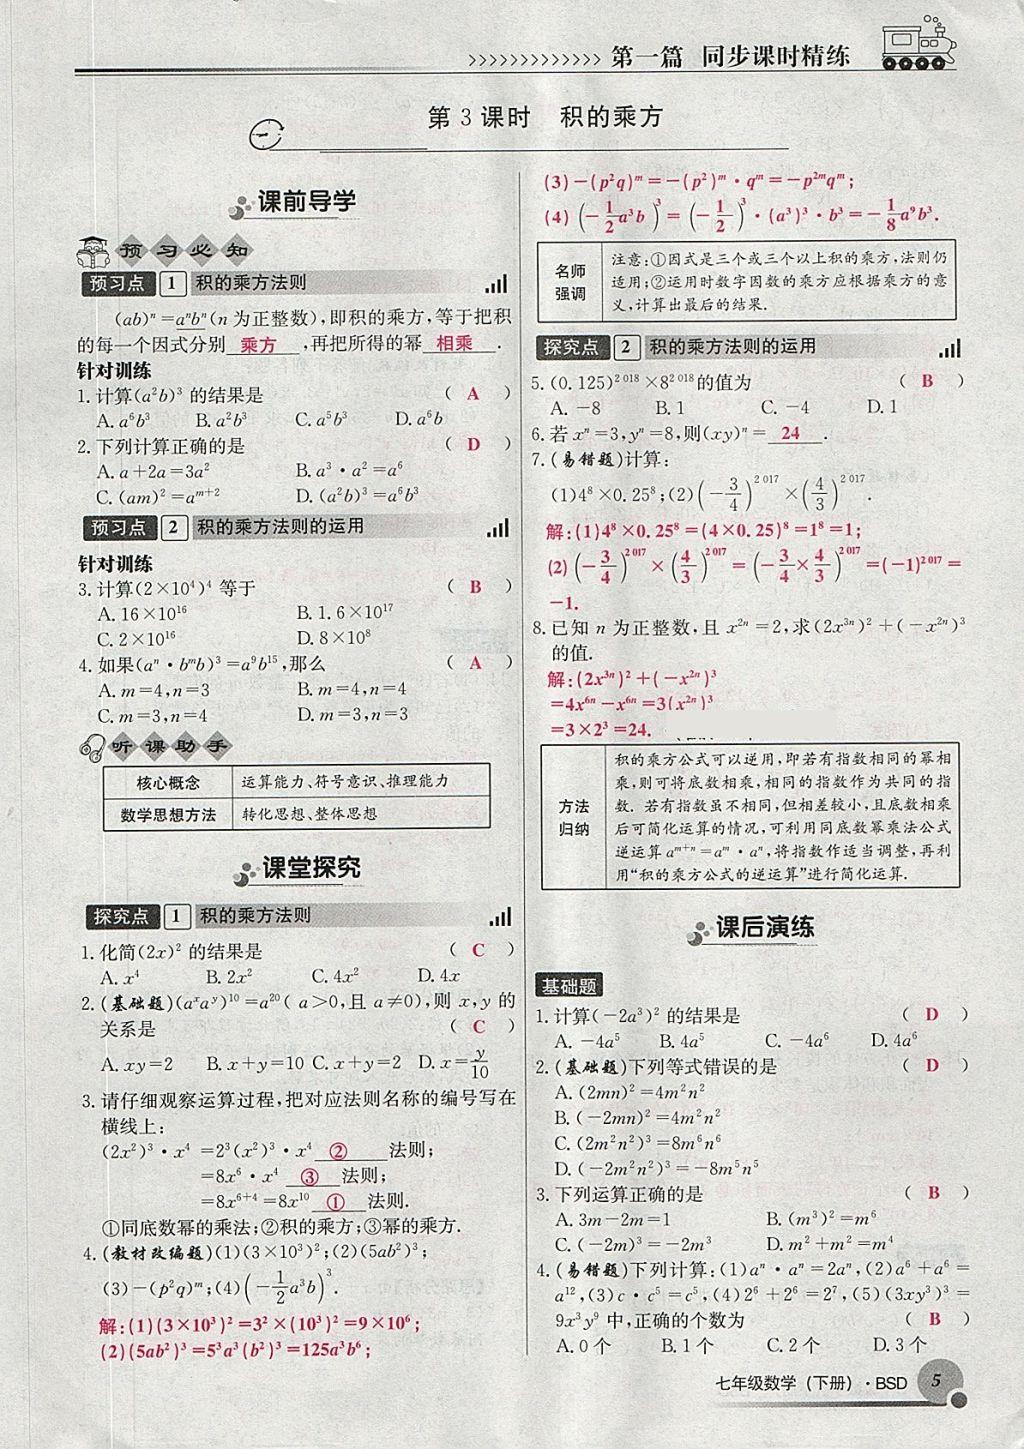 第一篇 同步课时精练
第3课时 积的乘方
课前导学
预习必知
预习点 1 积的乘方法则
(ab)ⁿ=aⁿbⁿ(n为正整数),即积的乘方,等于把积
的每一个因式分别 乘方 ,再把所得的幂 相乘 .
针对训练
1.计算(a²b)³的结果是 ( A )
A.a⁶b³ B.a²b³ C.a⁵b³ D.a⁶b
2.下列计算正确的是 ( D )
A.a+2a=3a² B.a³·a²=a⁶
C.(am)²=aᵐ⁺² D.(a²b)³=a⁶b³
预习点 2 积的乘方法则的运用
针对训练
3.计算(2×10⁴)⁴等于 ( B )
A.16×10¹⁶ B.1.6×10¹⁷
C.2×10¹⁶ D.8×10⁸
4.如果(aⁿ·bᵐb)³=a⁹b¹⁵,那么 ( A )
A.m=4,n=3 B.m=4,n=4
C.m=3,n=4 D.m=3,n=3
听课助手
核心概念 运算能力、符号意识、推理能力
数学思想方法 转化思想、整体思想
课堂探究
探究点 1 积的乘方法则
1.化简(2x)²的结果是 ( C )
A.x⁴ B.2x² C.4x² D.4x
2.(基础题)(aˣaʸ)¹⁰=a²⁰(a>0,且a≠0),则x,y的
关系是 ( C )
A.xy=2 B.x+y=10 C.x+y=2 D.x=y/10
3.请仔细观察运算过程,把对应法则名称的编号写在
横线上:
(2x²)³·x⁴ =2³(x²)³·x⁴ ② 法则;
=8x⁶·x⁴ ③ 法则;
=8x⁶⁺⁴=8x¹⁰ ① 法则.
①同底数幂的乘法;②积的乘方;③幂的乘方.
4.(教材改编题)(1)(3×10³)²;(2)(5ab²)³;
(3)-(p²q)ᵐ;(4)(-1/2a³b)³.
解:(1)(3×10³)²=3²×(10³)²=9×10⁶;
(2)(5ab²)³=5³a³(b²)³=125a³b⁶;
(3)-(p²q)ᵐ=-(p²)ᵐ·qᵐ=-p²ᵐqᵐ;
(4)(-1/2a³b)³=(-1/2)³·(a³)³·b³=-1/8a⁹b³.
名师强调
注意:①因式是三个或三个以上积的乘方,法则仍
适用;②运用时数字因数的乘方应根据乘方的意
义,计算出最后的结果.
探究点 2 积的乘方法则的运用
5.(0.125)²⁰¹⁸×8²⁰¹⁸的值为 ( B )
A.-8 B.1 C.-4 D.1
6.若xⁿ=3,yⁿ=8,则(xy)ⁿ= 24 .
7.(易错题)计算:
(1)4⁸×0.25⁸;(2)(-3/4)²⁰¹⁷×(4/3)²⁰¹⁷.
解:(1)4⁸×0.25⁸=(4×0.25)⁸=1⁸=1;
(2)(-3/4)²⁰¹⁷×(4/3)²⁰¹⁷=(-3/4×4/3)²⁰¹⁷=(-1)²⁰¹⁷=
-1.
8.已知n为正整数,且x²ⁿ=2,求(2x³ⁿ)²+(-x²ⁿ)³
的值.
解:(2x³ⁿ)²+(-x²ⁿ)³
=4x⁶ⁿ-x⁶ⁿ=3(x²ⁿ)³
=3×2³=24.
方法归纳
积的乘方公式可以逆用,即若有指数相同的幂相
乘,则可将底数相乘,相同的指数作为共同的指
数.若有指数虽不相同,但相差较小,且底数相乘
后可简化运算的情况,可利用同底数幂乘法公式
逆运算aᵐ⁺ⁿ=aᵐ·aⁿ,将指数作适当调整,再利
用“积的乘方公式的逆运算”进行简化运算.
课后演练
基础题
1.计算(-2a³)²的结果是 ( D )
A.-4a⁵ B.4a⁵ C.-4a⁶ D.4a⁶
2.(基础题)下列等式错误的是 ( D )
A.(2mn)²=4m²n²
B.(-2mn)²=4m²n²
C.(2m²n²)³=8m⁶n⁶
D.(-2m²n²)³=-8m⁵n⁵
3.下列运算正确的是 ( B )
A.3m-2m=1 B.(m³)²=m⁶
C.(-2m)³=-2m³ D.m²+m²=m⁴
4.(易错题)下列计算:(1)aⁿ·aⁿ=2aⁿ,(2)a⁶+a⁶=
a¹²,(3)c·c⁵=c⁵,(4)2⁶+2⁶=2⁷,(5)(3xy³)³=
9x³y⁹中,正确的个数为 ( B )
A.0个 B.1个 C.2个 D.3个
七年级数学(下册)·BSD 5